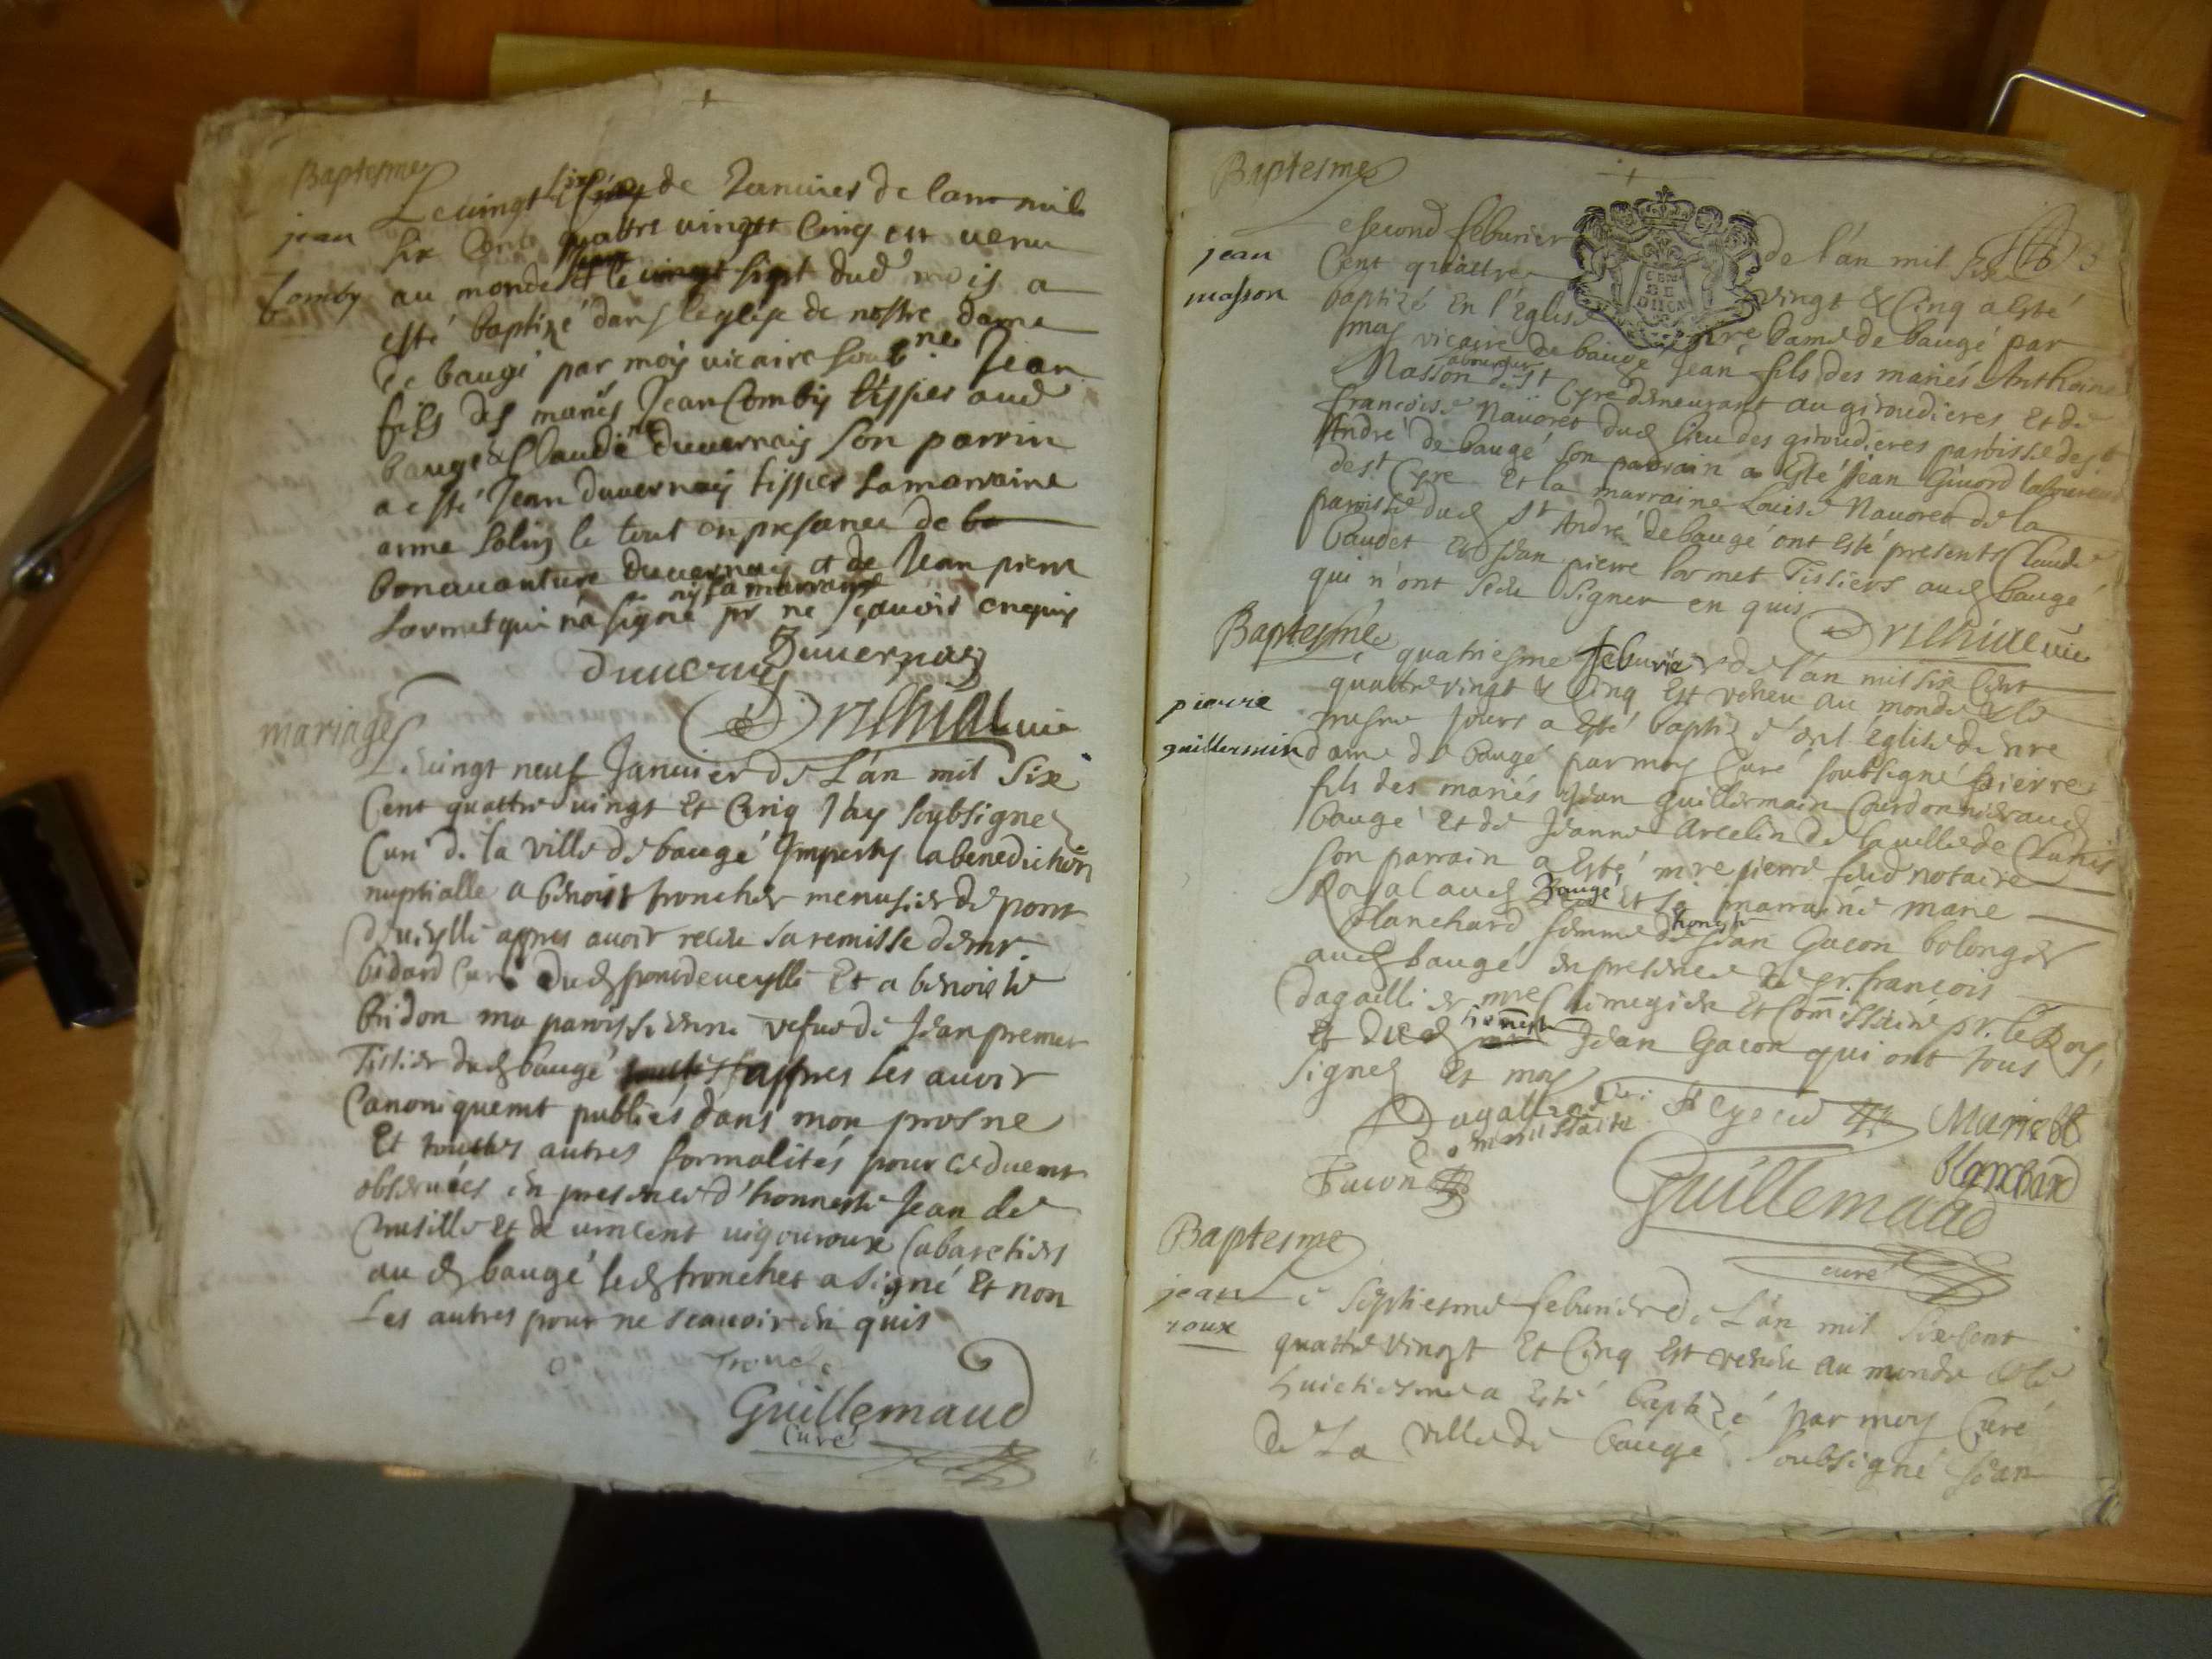 Baptesme
Le vingt six de Januier de lan mil
jean
six Cents quattre vingtz Cinq est venu
Comby
au monde et le vingt sept dud mois a
esté baptizé dans leglise de nostre dame
de baugé par moy vicaire soub.né Jean
fils des mariés Jean Comby tissier aud
baugé & Claudine duuernay son parrin
a esté Jean duuernay tissier sa marraine
anne le tout en presance de bo
bonauanture duuernay et de Jean pierre
ny sa marraine
Lormet qui n'a signé pr ne sçauoir enquis
duuernay
Duuernay
vic
mariage
Le vingt neuf Januier de L'an mil Six
Cent quattre vingt Et Cinq Jay soubsigné
Curé de la ville de baugé Imparty la benediction
nuptialle a benoist tronchet menusier de pont
de veylle appres auoir receu sa remisse de mr
bidard Curé dud pont de veylle Et a benoiste
bridon ma parroissienne vefue de Jean premet
Tissier dud baugé appres les auoir
Canoniquemt publiés dans mon prosne
Et touttes autres formalités pour ce duemt
obseruées en presence d'honneste Jean de
Et de vincent vigouroux Cabaretiers
aud baugé led tronchet a signé Et non
Les autres pour ne scauoir en quis
Guillemaud
Curé
Baptesme
Le second feburier de l'an mil six
jean
Cent quattre vingt & Cinq a Esté
masson
baptizé En l'Eglise nre Dame de baugé par
moy vicaire de baugé Jean fils des mariés Anthoine
Masson laboureur de st Cyre demeurant au giroudieres Et de
françoise Nauoret dud lieu des giroudieres parroisse de st
André de baugé son parrain a Esté Jean Giuord laboureur
de st Cyre Et la marraine Louise Nauoret de la
parroisse dud st André de baugé ont Esté presents Claude
baudet Et Jean pierre lormet Tissiers aud baugé
qui n'ont sceu signer en quis
vic
Baptesme
Le quatriesme feburier de l'an mil six Cent
quattre vingt & Cinq Est veneu au monde & le
pierre
mesme jours a Esté baptizé en l'Eglise de nre
guillermin
dame de baugé par moy Curé soubsigné pierre
fils des mariés Jean guillermain Courdonnier aud
baugé Et de Jeanne arcelin de la ville de
son parrain a Esté mre pierre notaire
Royal aud Baugé Et sa marraine marie
blanchard femme de honeste Jean Gacon bolonger
aud baugé en presence de sr. françois
dagallier mre Et Commissaire pr. le Roy,
Et dud honneste Jean Gacon qui ont tous
signés Et moy
Dagallier
Commissaire
Marie
blanchard
Facon
Guillemaud
curé
Baptesme
jean
Le septiesme feburier de L'an mil six Cent
roux
quattre vingt Et Cinq Est veneu au monde & le
huictiesme a Esté baptizé par moy Curé
de La ville de baugé soubsigné Jean